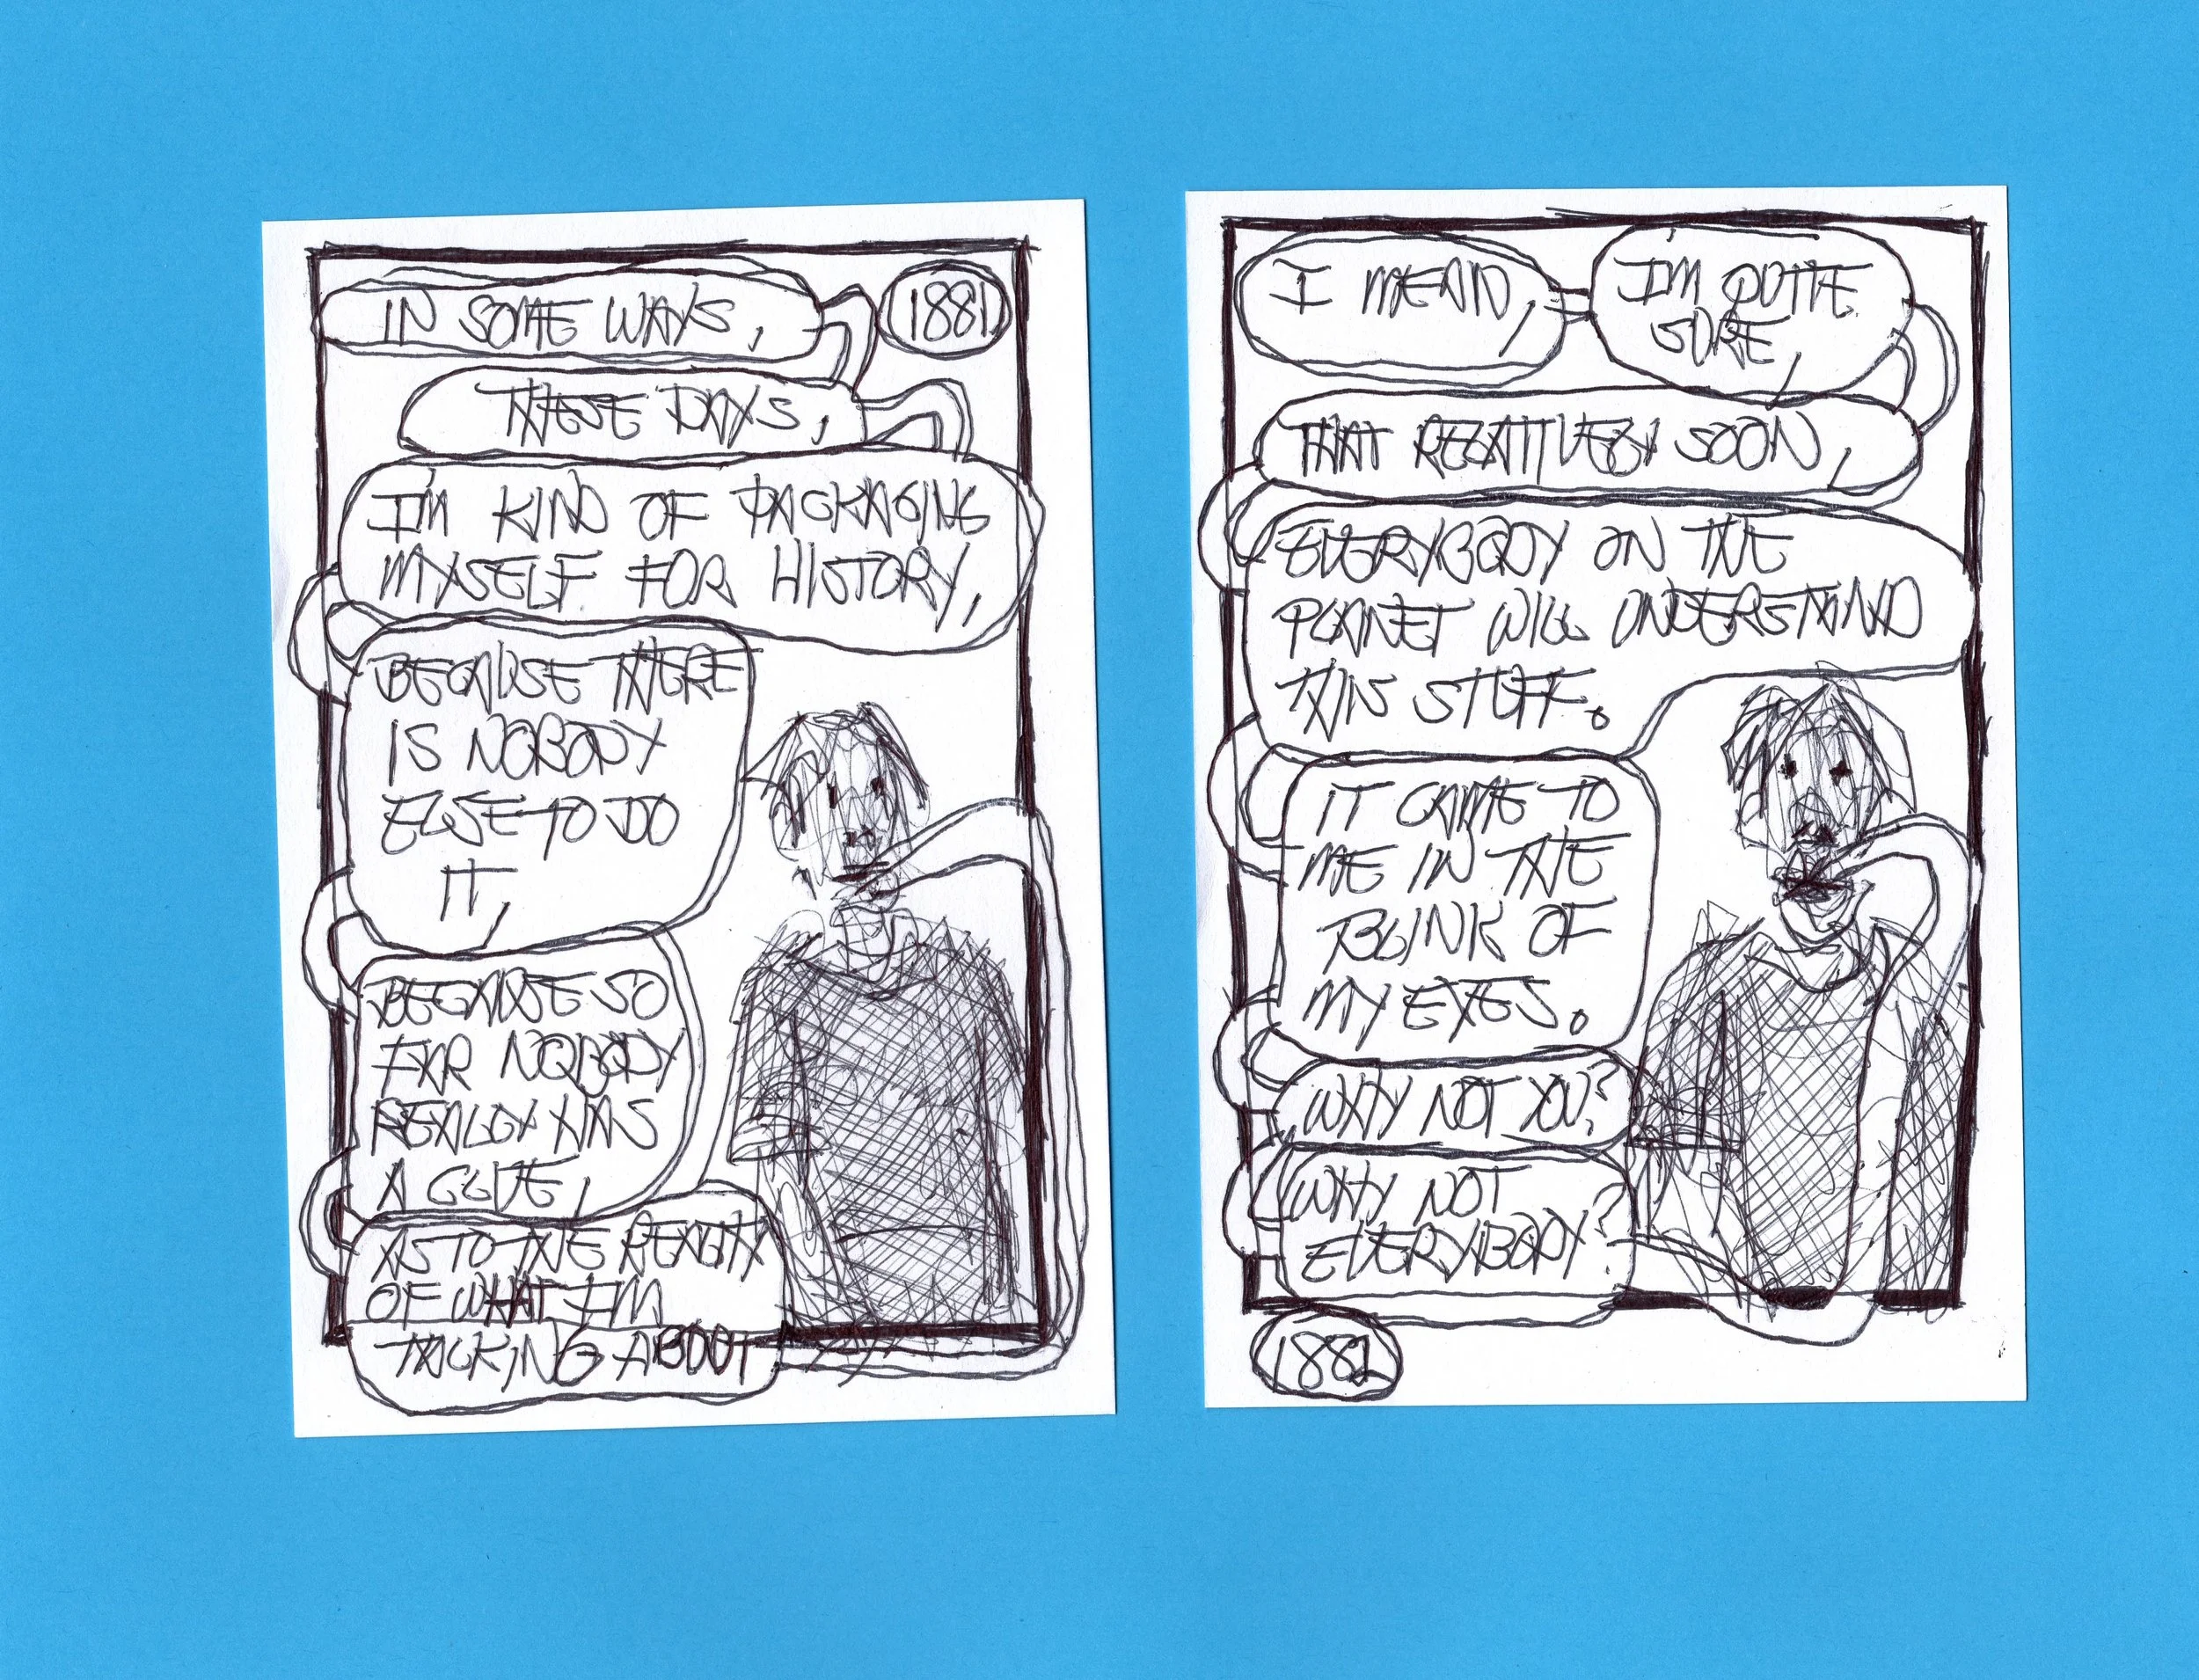 IN SOME WAYS,
1881
THESE DAYS,
I'M KIND OF PACKAGING
MYSELF FOR HISTORY,
BECAUSE THERE
IS NOBODY
ELSE TO DO
IT,
BECAUSE SO
FAR NOBODY
REALLY HAS
A CLUE,
AS TO THE REALITY
OF WHAT I'M
TALKING ABOUT
I MEAN,
I'M QUITE
SURE,
THAT RELATIVELY SOON,
EVERYBODY ON THE
PLANET WILL UNDERSTAND
THIS STUFF.
IT CAME TO
ME IN THE
BLINK OF
MY EYES.
WHY NOT YOU?
WHY NOT
EVERYBODY?
1882